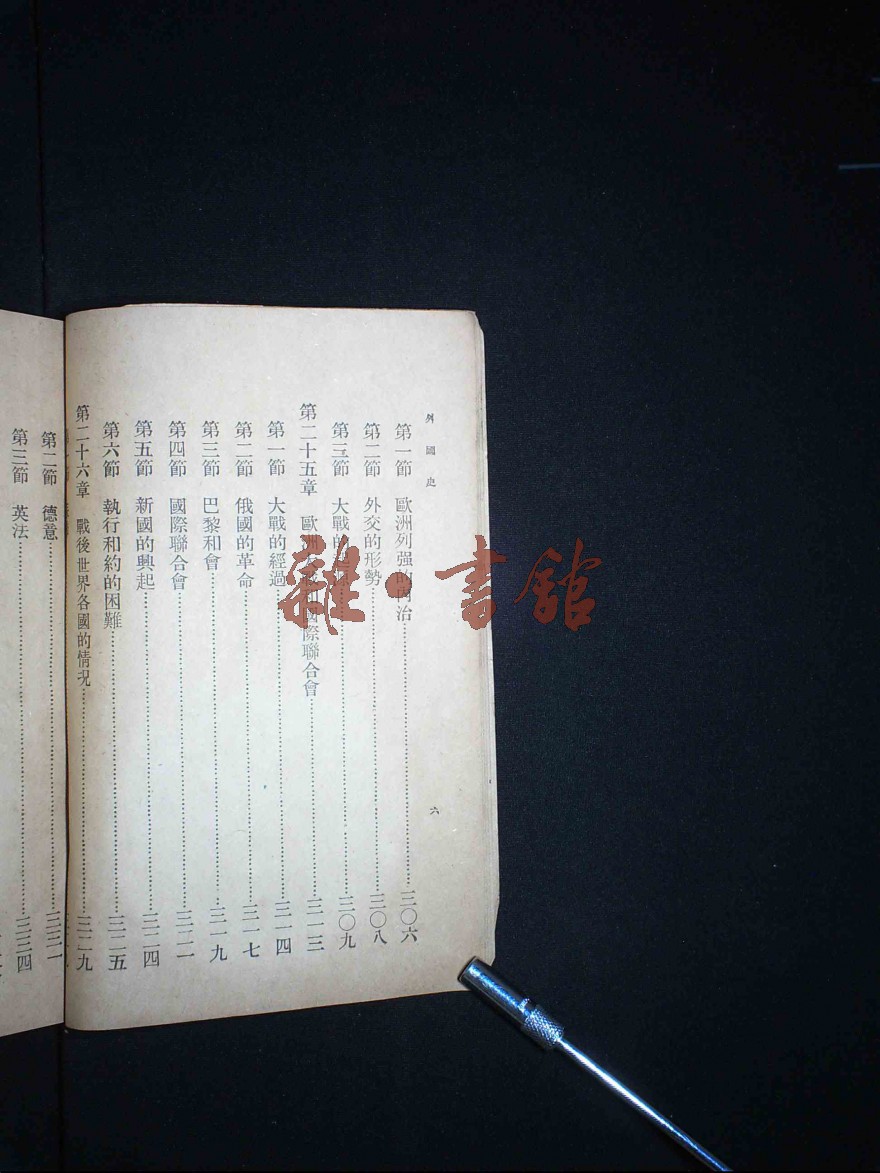 列國史
六
第一節 歐洲列强的 治 三〇六
第二節 外交的形勢 三〇八
第三節 大戰的 三〇九
第二十五章 歐洲 國際聯合會 三一三
第一節 大戰的經過 三一四
第二節 俄國的革命 三一七
第三節 巴黎和會 三一九
第四節 國際聯合會 三二一
第五節 新國的興起 三二四
第六節 執行和約的困難 三二五
第二十六章 戰後世界各國的情况 三二九
第二節 德意 三三一
第三節 英法 三三四
雜·書館